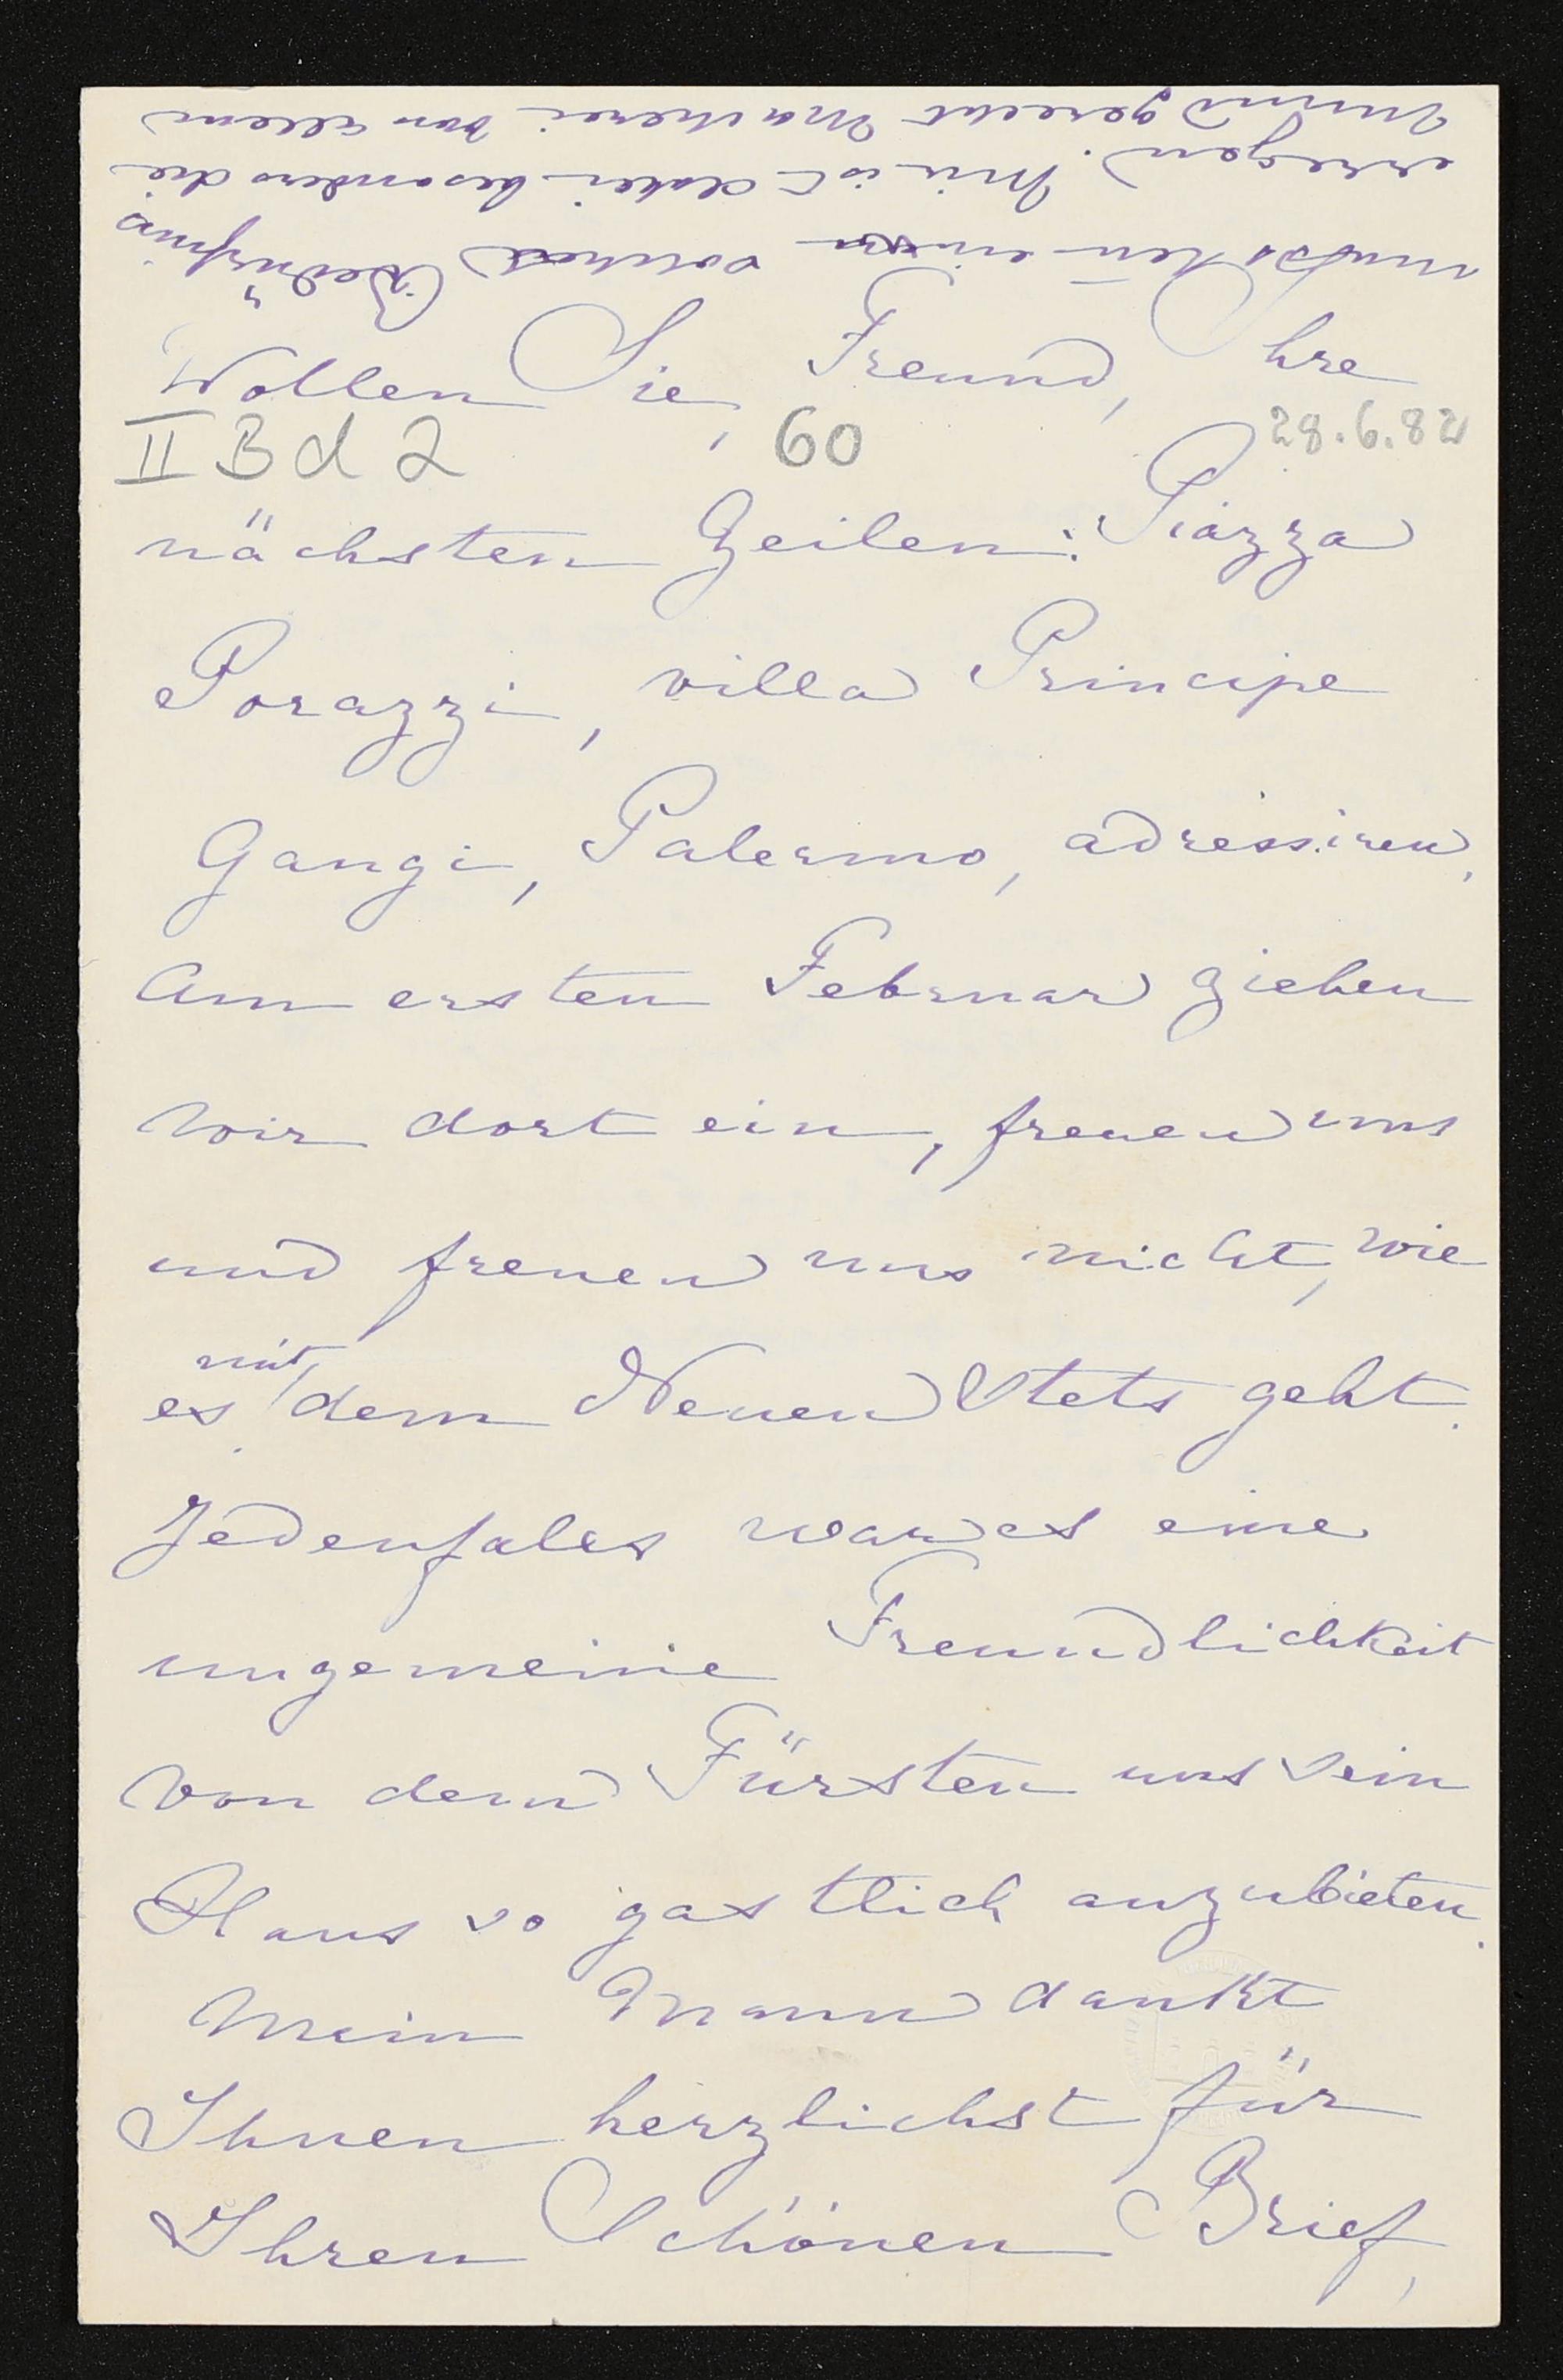 Wollen Sie, Freund, Ihre
II Bd 2 60 28.6.82
nächsten Zeilen: Piazza
Porazzi, villa Principe
Gangi, Palermo, adressiren,
Am ersten Februar ziehen
wir dort ein, freuen uns
und freuen uns nicht, wie
es mit dem Neuen Stets geht.
Jedenfalls war es eine
ungemeine Freundlichkeit
von dem Fürsten uns sein
Haus so gastlich anzubieten.
Mein Mann dankt
Ihnen herzlichst für
Ihren Schönen Brief,
Bedürfniss
erregen. Mir ist dabei besonders die
Mund gerecht Macherei von allem